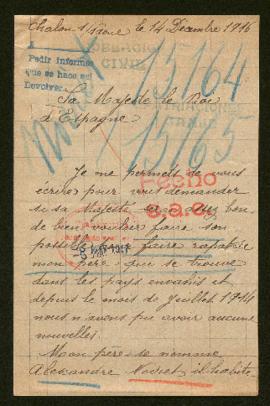 Chalon s/Saône le 14 Décembre 1916
Pedir informes
que se hace así
Devolver
POBLACION
CIVIL
15164
1565
Sa Majesté le Roi
d'Espagne
Je me permets de vous
écrire pour vous demander
si sa Majesté bon
de bien vouloir faire son
possible faire rapatrié
mon père que se trouve
dans les pays envahis et
depuis le mois de Juillet 1914
nous n'avons pue avoir aucune
nouvelles.
Moon père se nomme
Alexandre il habite
Hecho
s.a.c.